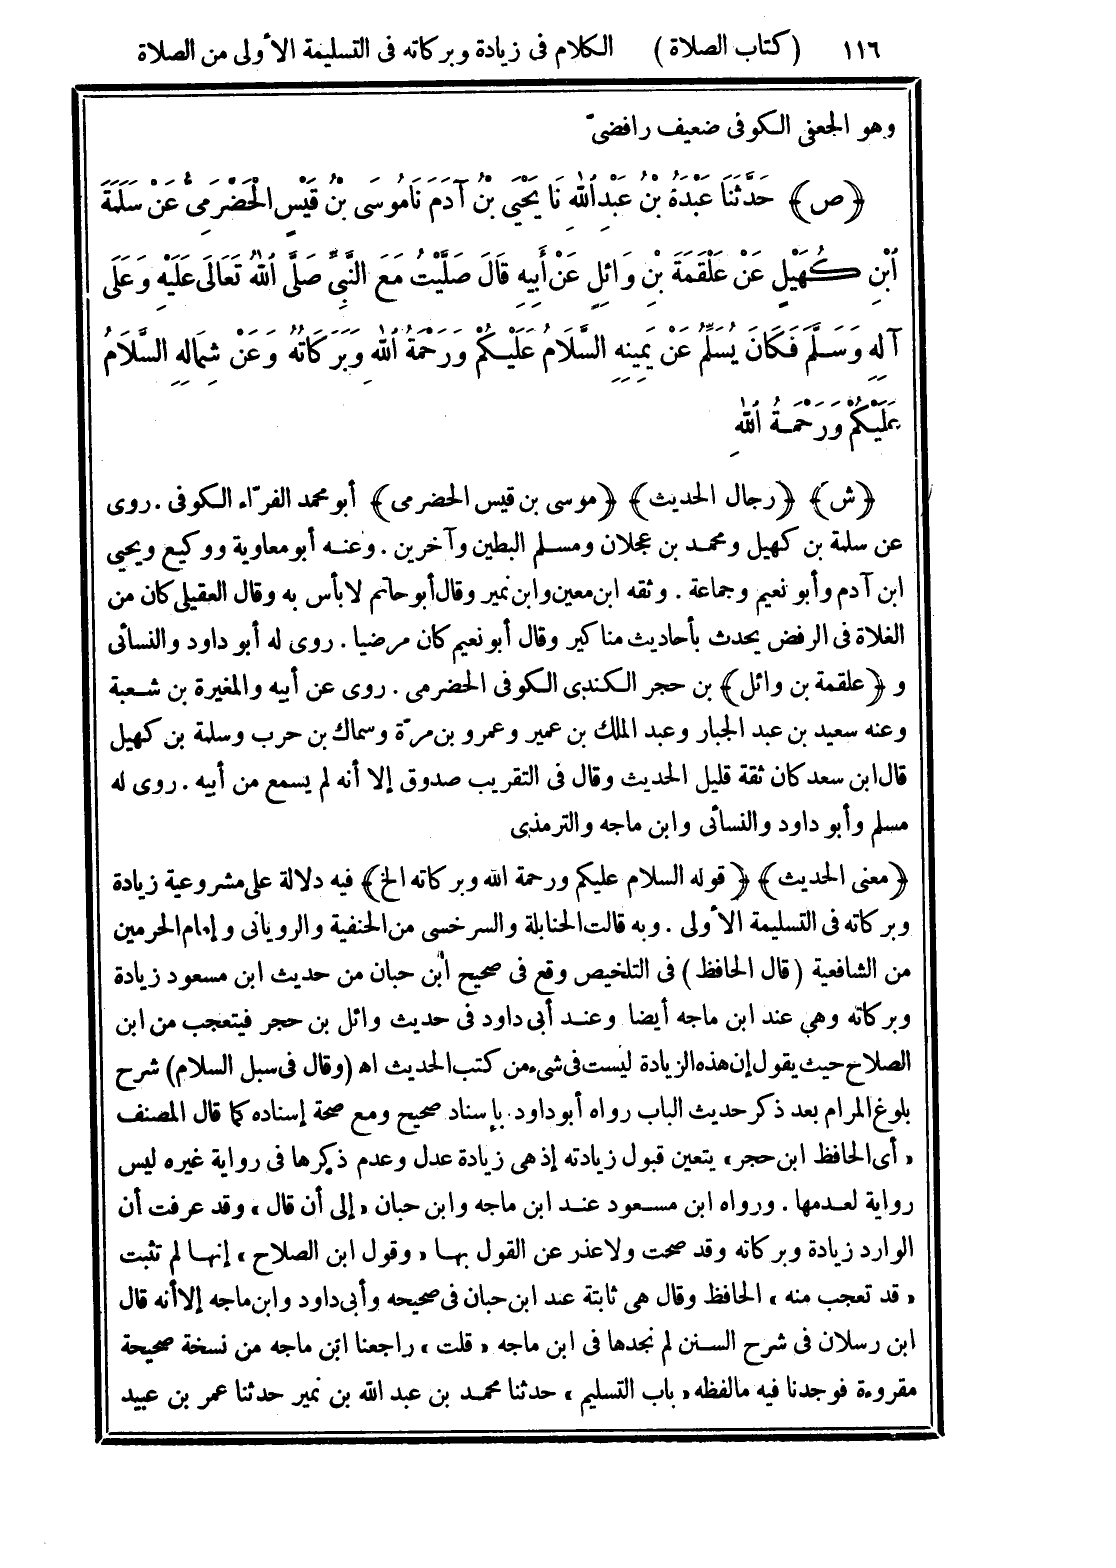 ١١٦ (كتاب الصلاة) الكلام فى زيادة وبركاته فى التسليمة الأولى من الصلاة
وهو الجعفى الكوفى ضعيف رافضىّ
﴿ص﴾ حَدَّثَنَا عَبْدَةُ بْنُ عَبْدِ اللهِ نَا يَحْيَى بْنُ آدَمَ نَا مُوسَى بْنُ قَيْسٍ الْحَضْرَمِىُّ عَنْ سَلَمَةَ
ابْنِ كُهَيْلٍ عَنْ عَلْقَمَةَ بْنِ وَائِلٍ عَنْ أَبِيهِ قَالَ صَلَّيْتُ مَعَ النَّبِىِّ صَلَّى اللهُ تَعَالَى عَلَيْهِ وَعَلَى
آلِهِ وَسَلَّمَ فَكَانَ يُسَلِّمُ عَنْ يَمِينِهِ السَّلَامُ عَلَيْكُمْ وَرَحْمَةُ اللهِ وَبَرَكَاتُهُ وَعَنْ شِمَالِهِ السَّلَامُ
عَلَيْكُمْ وَرَحْمَةُ اللهِ
﴿ش﴾ ﴿رجال الحديث﴾ ﴿موسى بن قيس الحضرمى﴾ أبو محمد الفرّاء الكوفى. روى
عن سلمة بن كهيل ومحمد بن عجلان ومسلم البطين وآخرين. وعنه أبو معاوية ووكيع ويحيى
ابن آدم وأبو نعيم وجماعة. وثقه ابن معين وابن نمير وقال أبو حاتم لا بأس به وقال العقيلى كان من
الغلاة فى الرفض يحدث بأحاديث مناكير وقال أبو نعيم كان مرضيا. روى له أبو داود والنسائى
و ﴿علقمة بن وائل﴾ بن حجر الكندى الكوفى الحضرمى. روى عن أبيه والمغيرة بن شعبة
وعنه سعيد بن عبد الجبار وعبد الملك بن عمير وعمرو بن مرّة وسماك بن حرب وسلمة بن كهيل
قال ابن سعد كان ثقة قليل الحديث وقال فى التقريب صدوق إلا أنه لم يسمع من أبيه. روى له
مسلم وأبو داود والنسائى وابن ماجه والترمذى
﴿معنى الحديث﴾ ﴿قوله السلام عليكم ورحمة الله وبركاته الخ﴾ فيه دلالة على مشروعية زيادة
وبركاته فى التسليمة الأولى. وبه قالت الحنابلة والسرخسى من الحنفية والرويانى وإمام الحرمين
من الشافعية (قال الحافظ) فى التلخيص وقع فى صحيح ابن حبان من حديث ابن مسعود زيادة
وبركاته وهى عند ابن ماجه أيضا وعند أبى داود فى حديث وائل بن حجر فيتعجب من ابن
الصلاح حيث يقول إن هذه الزيادة ليست فى شىء من كتب الحديث اه (وقال فى سبل السلام) شرح
بلوغ المرام بعد ذكر حديث الباب رواه أبو داود بإسناد صحيح ومع صحة إسناده كما قال المصنف
«أى الحافظ ابن حجر» يتعين قبول زيادته إذ هى زيادة عدل وعدم ذكرها فى رواية غيره ليس
رواية لعدمها. ورواه ابن مسعود عند ابن ماجه وابن حبان «إلى أن قال» وقد عرفت أن
الوارد زيادة وبركاته وقد صحت ولا عذر عن القول بها «وقول ابن الصلاح» إنها لم تثبت
«قد تعجب منه» الحافظ وقال هى ثابتة عند ابن حبان فى صحيحه وأبى داود وابن ماجه إلا أنه قال
ابن رسلان فى شرح السنن لم نجدها فى ابن ماجه «قلت» راجعنا ابن ماجه من نسخة صحيحة
مقروءة فوجدنا فيه مالفظه «باب التسليم» حدثنا محمد بن عبد الله بن نمير حدثنا عمر بن عبيد